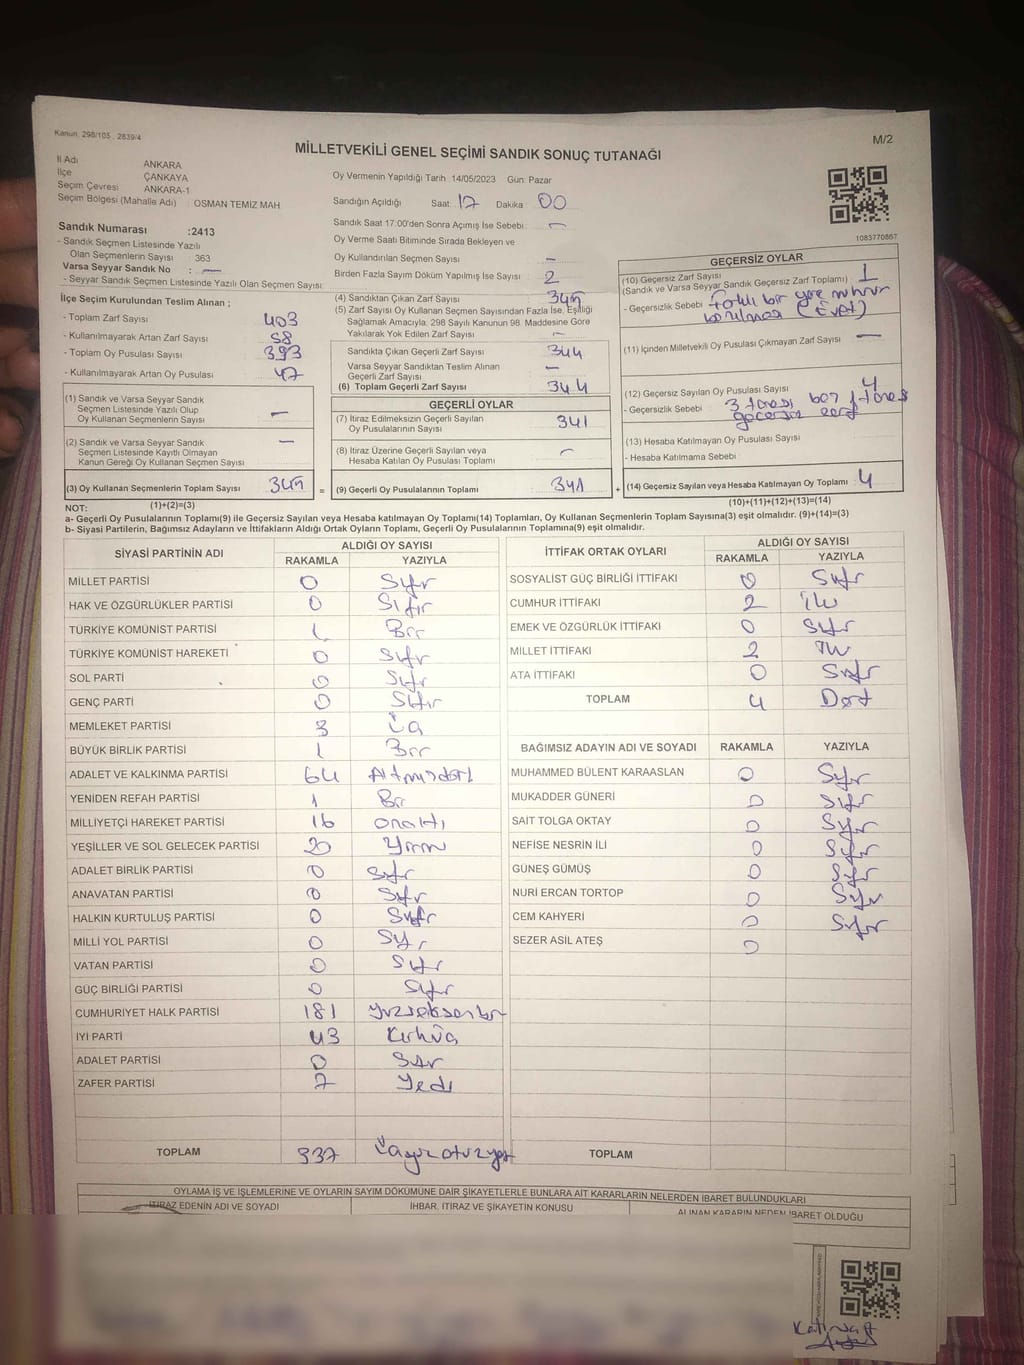 Kanun. 298/105 , 2839/4
M/2
MİLLETVEKİLİ GENEL SEÇİMİ SANDIK SONUÇ TUTANAĞI
İl Adı ANKARA
İlçe ÇANKAYA
Seçim Çevresi ANKARA-1
Seçim Bölgesi (Mahalle Adı) : OSMAN TEMİZ MAH
Sandık Numarası :2413
- Sandık Seçmen Listesinde Yazılı
Olan Seçmenlerin Sayısı : 363
Varsa Seyyar Sandık No : —
- Seyyar Sandık Seçmen Listesinde Yazılı Olan Seçmen Sayısı:
İlçe Seçim Kurulundan Teslim Alınan ;
- Toplam Zarf Sayısı 403
- Kullanılmayarak Artan Zarf Sayısı 58
- Toplam Oy Pusulası Sayısı 393
- Kullanılmayarak Artan Oy Pusulası 47
(1) Sandık ve Varsa Seyyar Sandık
Seçmen Listesinde Yazılı Olup
Oy Kullanan Seçmenlerin Sayısı —
(2) Sandık ve Varsa Seyyar Sandık
Seçmen Listesinde Kayıtlı Olmayan
Kanun Gereği Oy Kullanan Seçmen Sayısı —
(3) Oy Kullanan Seçmenlerin Toplam Sayısı 345 =
(1)+(2)=(3)
Oy Vermenin Yapıldığı Tarih 14/05/2023 Gün: Pazar
Sandığın Açıldığı Saat: 17 Dakika 00
Sandık Saat 17:00'den Sonra Açımış İse Sebebi —
Oy Verme Saati Bitiminde Sırada Bekleyen ve
Oy Kullandırılan Seçmen Sayısı —
Birden Fazla Sayım Döküm Yapılmış İse Sayısı 2
(4) Sandıktan Çıkan Zarf Sayısı 345
(5) Zarf Sayısı Oy Kullanan Seçmen Sayısından Fazla İse, Eşitliği
Sağlamak Amacıyla; 298 Sayılı Kanunun 98. Maddesine Göre
Yakılarak Yok Edilen Zarf Sayısı —
Sandıkta Çıkan Geçerli Zarf Sayısı 344
Varsa Seyyar Sandıktan Teslim Alınan
Geçerli Zarf Sayısı —
(6) Toplam Geçerli Zarf Sayısı 344
GEÇERLİ OYLAR
(7) İtiraz Edilmeksizin Geçerli Sayılan
Oy Pusulalarının Sayısı 341
(8) İtiraz Üzerine Geçerli Sayılan veya
Hesaba Katılan Oy Pusulası Toplamı —
(9) Geçerli Oy Pusulalarının Toplamı 341 +
1083770867
GEÇERSİZ OYLAR
(10) Geçersiz Zarf Sayısı
(Sandık ve Varsa Seyyar Sandık Geçersiz Zarf Toplamı) 1
- Geçersizlik Sebebi farklı bir yere mühür
(Evet)
(11) İçinden Milletvekili Oy Pusulası Çıkmayan Zarf Sayısı —
(12) Geçersiz Sayılan Oy Pusulası Sayısı 4
- Geçersizlik Sebebi 3 tanesi boş 1 tanesi
geçersiz
(13) Hesaba Katılmayan Oy Pusulası Sayısı
- Hesaba Katılmama Sebebi
(14) Geçersiz Sayılan veya Hesaba Katılmayan Oy Toplamı 4
(10)+(11)+(12)+(13)=(14)
NOT:
a- Geçerli Oy Pusulalarının Toplamı(9) ile Geçersiz Sayılan veya Hesaba katılmayan Oy Toplamı(14) Toplamları, Oy Kullanan Seçmenlerin Toplam Sayısına(3) eşit olmalıdır. (9)+(14)=(3)
b- Siyasi Partilerin, Bağımsız Adayların ve İttifakların Aldığı Ortak Oyların Toplamı, Geçerli Oy Pusulalarının Toplamına(9) eşit olmalıdır.
SİYASİ PARTİNİN ADI ALDIĞI OY SAYISI
RAKAMLA YAZIYLA
MİLLET PARTİSİ 0 Sıfır
HAK VE ÖZGÜRLÜKLER PARTİSİ 0 Sıfır
TÜRKİYE KOMÜNİST PARTİSİ 1 Bir
TÜRKİYE KOMÜNİST HAREKETİ 0 Sıfır
SOL PARTİ 0 Sıfır
GENÇ PARTİ 0 Sıfır
MEMLEKET PARTİSİ 3 Üç
BÜYÜK BİRLİK PARTİSİ 1 Bir
ADALET VE KALKINMA PARTİSİ 64 Altmışdört
YENİDEN REFAH PARTİSİ 1 Bir
MİLLİYETÇİ HAREKET PARTİSİ 16 onaltı
YEŞİLLER VE SOL GELECEK PARTİSİ 20 Yirmi
ADALET BİRLİK PARTİSİ 0 Sıfır
ANAVATAN PARTİSİ 0 Sıfır
HALKIN KURTULUŞ PARTİSİ 0 Sıfır
MİLLİ YOL PARTİSİ 0 Sıfır
VATAN PARTİSİ 0 Sıfır
GÜÇ BİRLİĞİ PARTİSİ 0 Sıfır
CUMHURİYET HALK PARTİSİ 181 Yüzseksenbir
İYİ PARTİ 43 Kırküç
ADALET PARTİSİ 0 Sıfır
ZAFER PARTİSİ 7 Yedi
TOPLAM 337 Üçyüzotuzyedi
İTTİFAK ORTAK OYLARI ALDIĞI OY SAYISI
RAKAMLA YAZIYLA
SOSYALİST GÜÇ BİRLİĞİ İTTİFAKI 0 Sıfır
CUMHUR İTTİFAKI 2 İki
EMEK VE ÖZGÜRLÜK İTTİFAKI 0 Sıfır
MİLLET İTTİFAKI 2 İki
ATA İTTİFAKI 0 Sıfır
TOPLAM 4 Dört
BAĞIMSIZ ADAYIN ADI VE SOYADI RAKAMLA YAZIYLA
MUHAMMED BÜLENT KARAASLAN 0 Sıfır
MUKADDER GÜNERİ 0 Sıfır
SAİT TOLGA OKTAY 0 Sıfır
NEFİSE NESRİN İLİ 0 Sıfır
GÜNEŞ GÜMÜŞ 0 Sıfır
NURİ ERCAN TORTOP 0 Sıfır
CEM KAHYERİ 0 Sıfır
SEZER ASİL ATEŞ 0
TOPLAM
OYLAMA İŞ VE İŞLEMLERİNE VE OYLARIN SAYIM DÖKÜMÜNE DAİR ŞİKAYETLERLE BUNLARA AİT KARARLARIN NELERDEN İBARET BULUNDUKLARI
İTİRAZ EDENİN ADI VE SOYADI İHBAR, İTİRAZ VE ŞİKAYETİN KONUSU ALINAN KARARIN NEDEN İBARET OLDUĞU